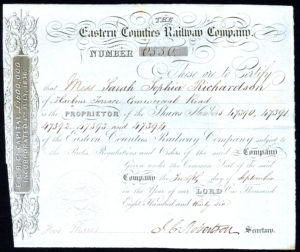 THE
Eastern Counties Railway Company.
NUMBER 0550
These are to Certify
that Miss Sarah Sophia Richardson
of Terrace Commercial Road
is the PROPRIETOR of the Shares Numbers 47390, 47391
47392, 47393 and 47394
of the Eastern Counties Railway Company subject to
the Rules, Regulations and Orders of the said Company
Given under the Common Seal of the said
Company the day of September
in the Year of our LORD One Thousand
Eight Hundred and thirty six
Five Shares
Secretary.